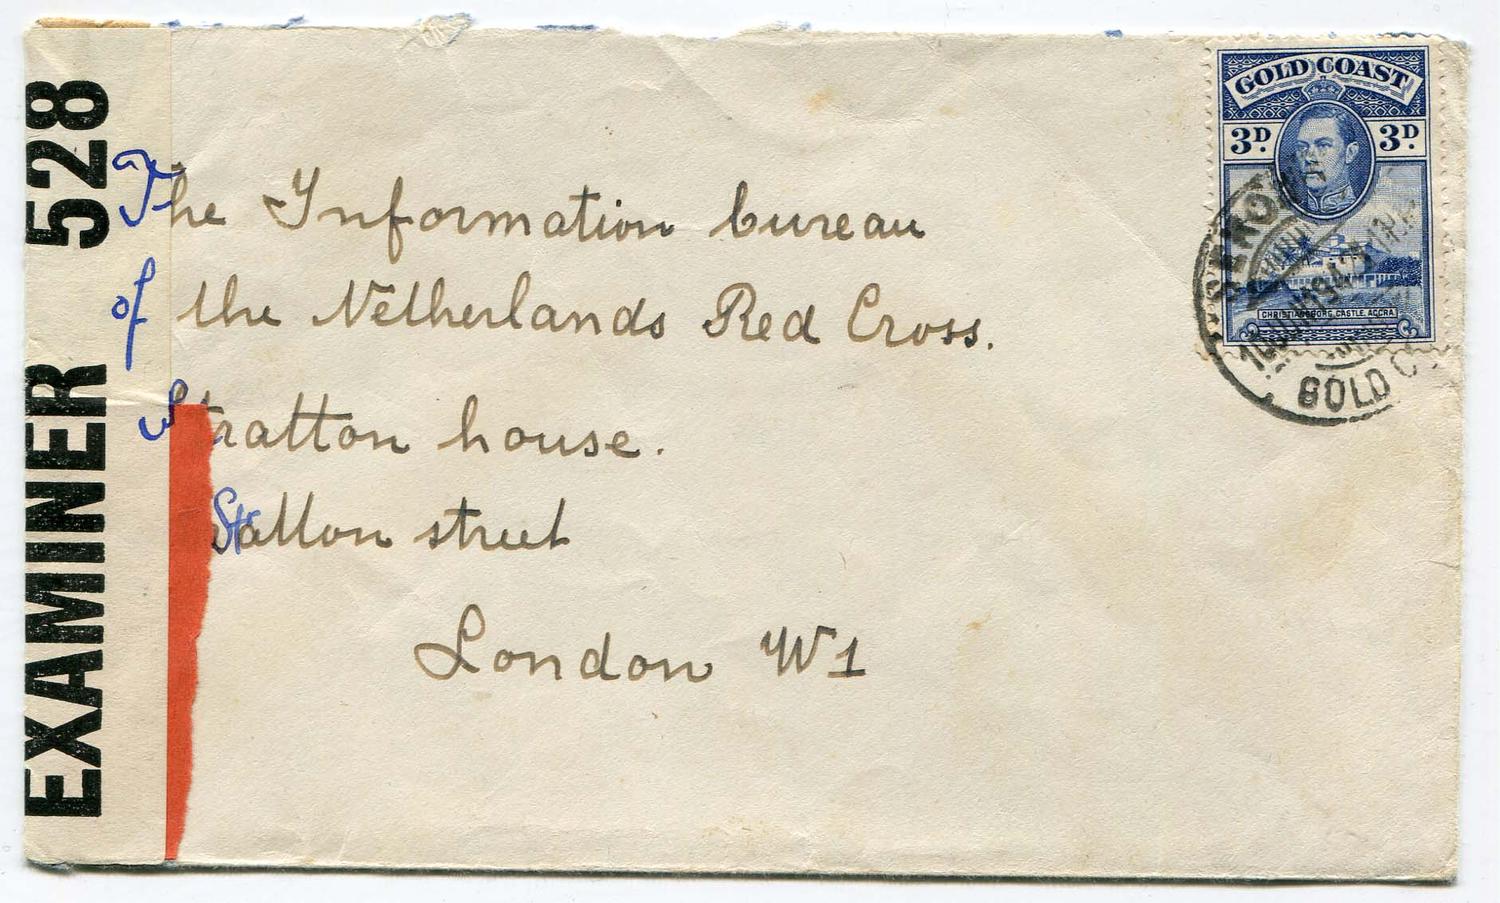 EXAMINER 528
The Information bureau
of the Netherlands Red Cross.
Stratton house.
Stratton street
London W1
GOLD COAST
3D. 3D.
CHRISTIANSBORG CASTLE, ACCRA
GOLD